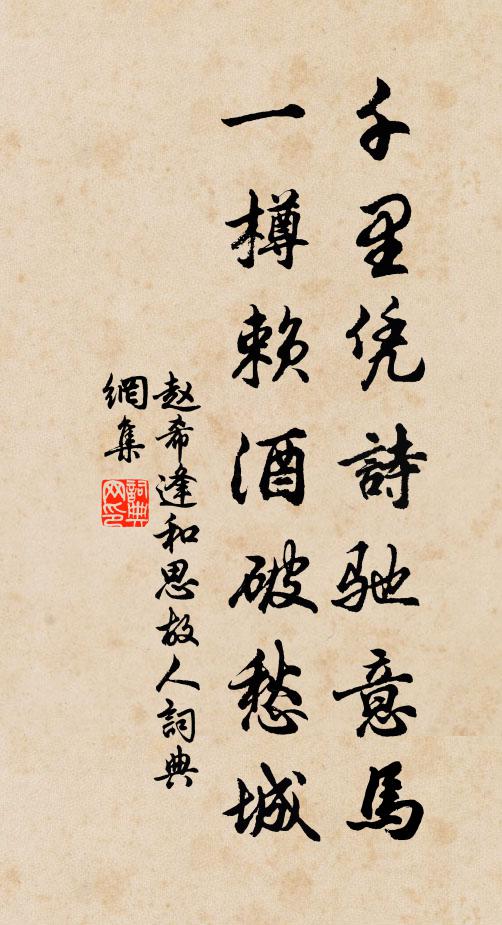 千里凭詩馳意馬
一樽赖酒破愁城
赵希逢和思故人詞典
網集
詞典
网印